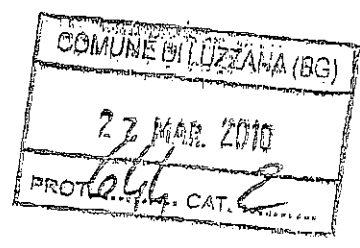 COMUNE DI LUZZANA (BG)
MAR. 2010
PROT. 644 CAT.